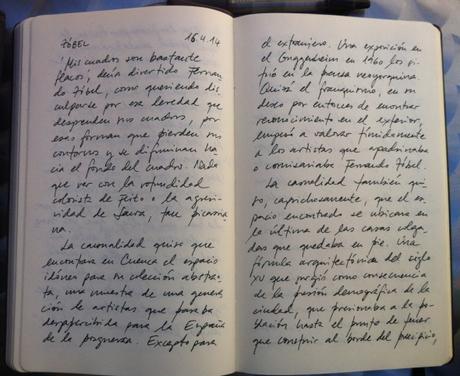 ZÓBEL 16.4.14
'Mis cuadros son bastante
flacos', decía divertido Fernan-
do Zóbel, como queriendo dis-
culparse por esa levedad que
desprenden sus cuadros, por
esas formas que pierden sus
contornos y se difuminan ha-
cia el fondo del cuadro. Nada
que ver con la rotundidad
colorista de Feito o la agresi-
vidad de Saura, tan picassia-
na.
La casualidad quiso que
encontrara en Cuenca el espacio
idóneo para su colección abstrac-
ta, una muestra de una genera-
ción de artistas que pasaba
desapercibida para la España
de la posguerra. Excepto para
el extranjero. Una exposición en
el Guggenheim en 1960 los si-
tuó en la prensa neoyorquina.
Quizá el franquismo, en su
deseo por entonces de encontrar
reconocimiento en el exterior,
empezó a valorar tímidamente
a los artistas que apadrinaba
o comisariaba Fernando Zóbel.
La casualidad también qui-
so, caprichosamente, que el es-
pacio encontrado se ubicara en
la última de las casas colga-
das que quedaba en pie. Una
fórmula arquitectónica del siglo
XV que surgió como consecuencia
de la presión demográfica de la
ciudad, que presionaba a la po-
blación hasta el punto de tener
que construir al borde del precipicio,